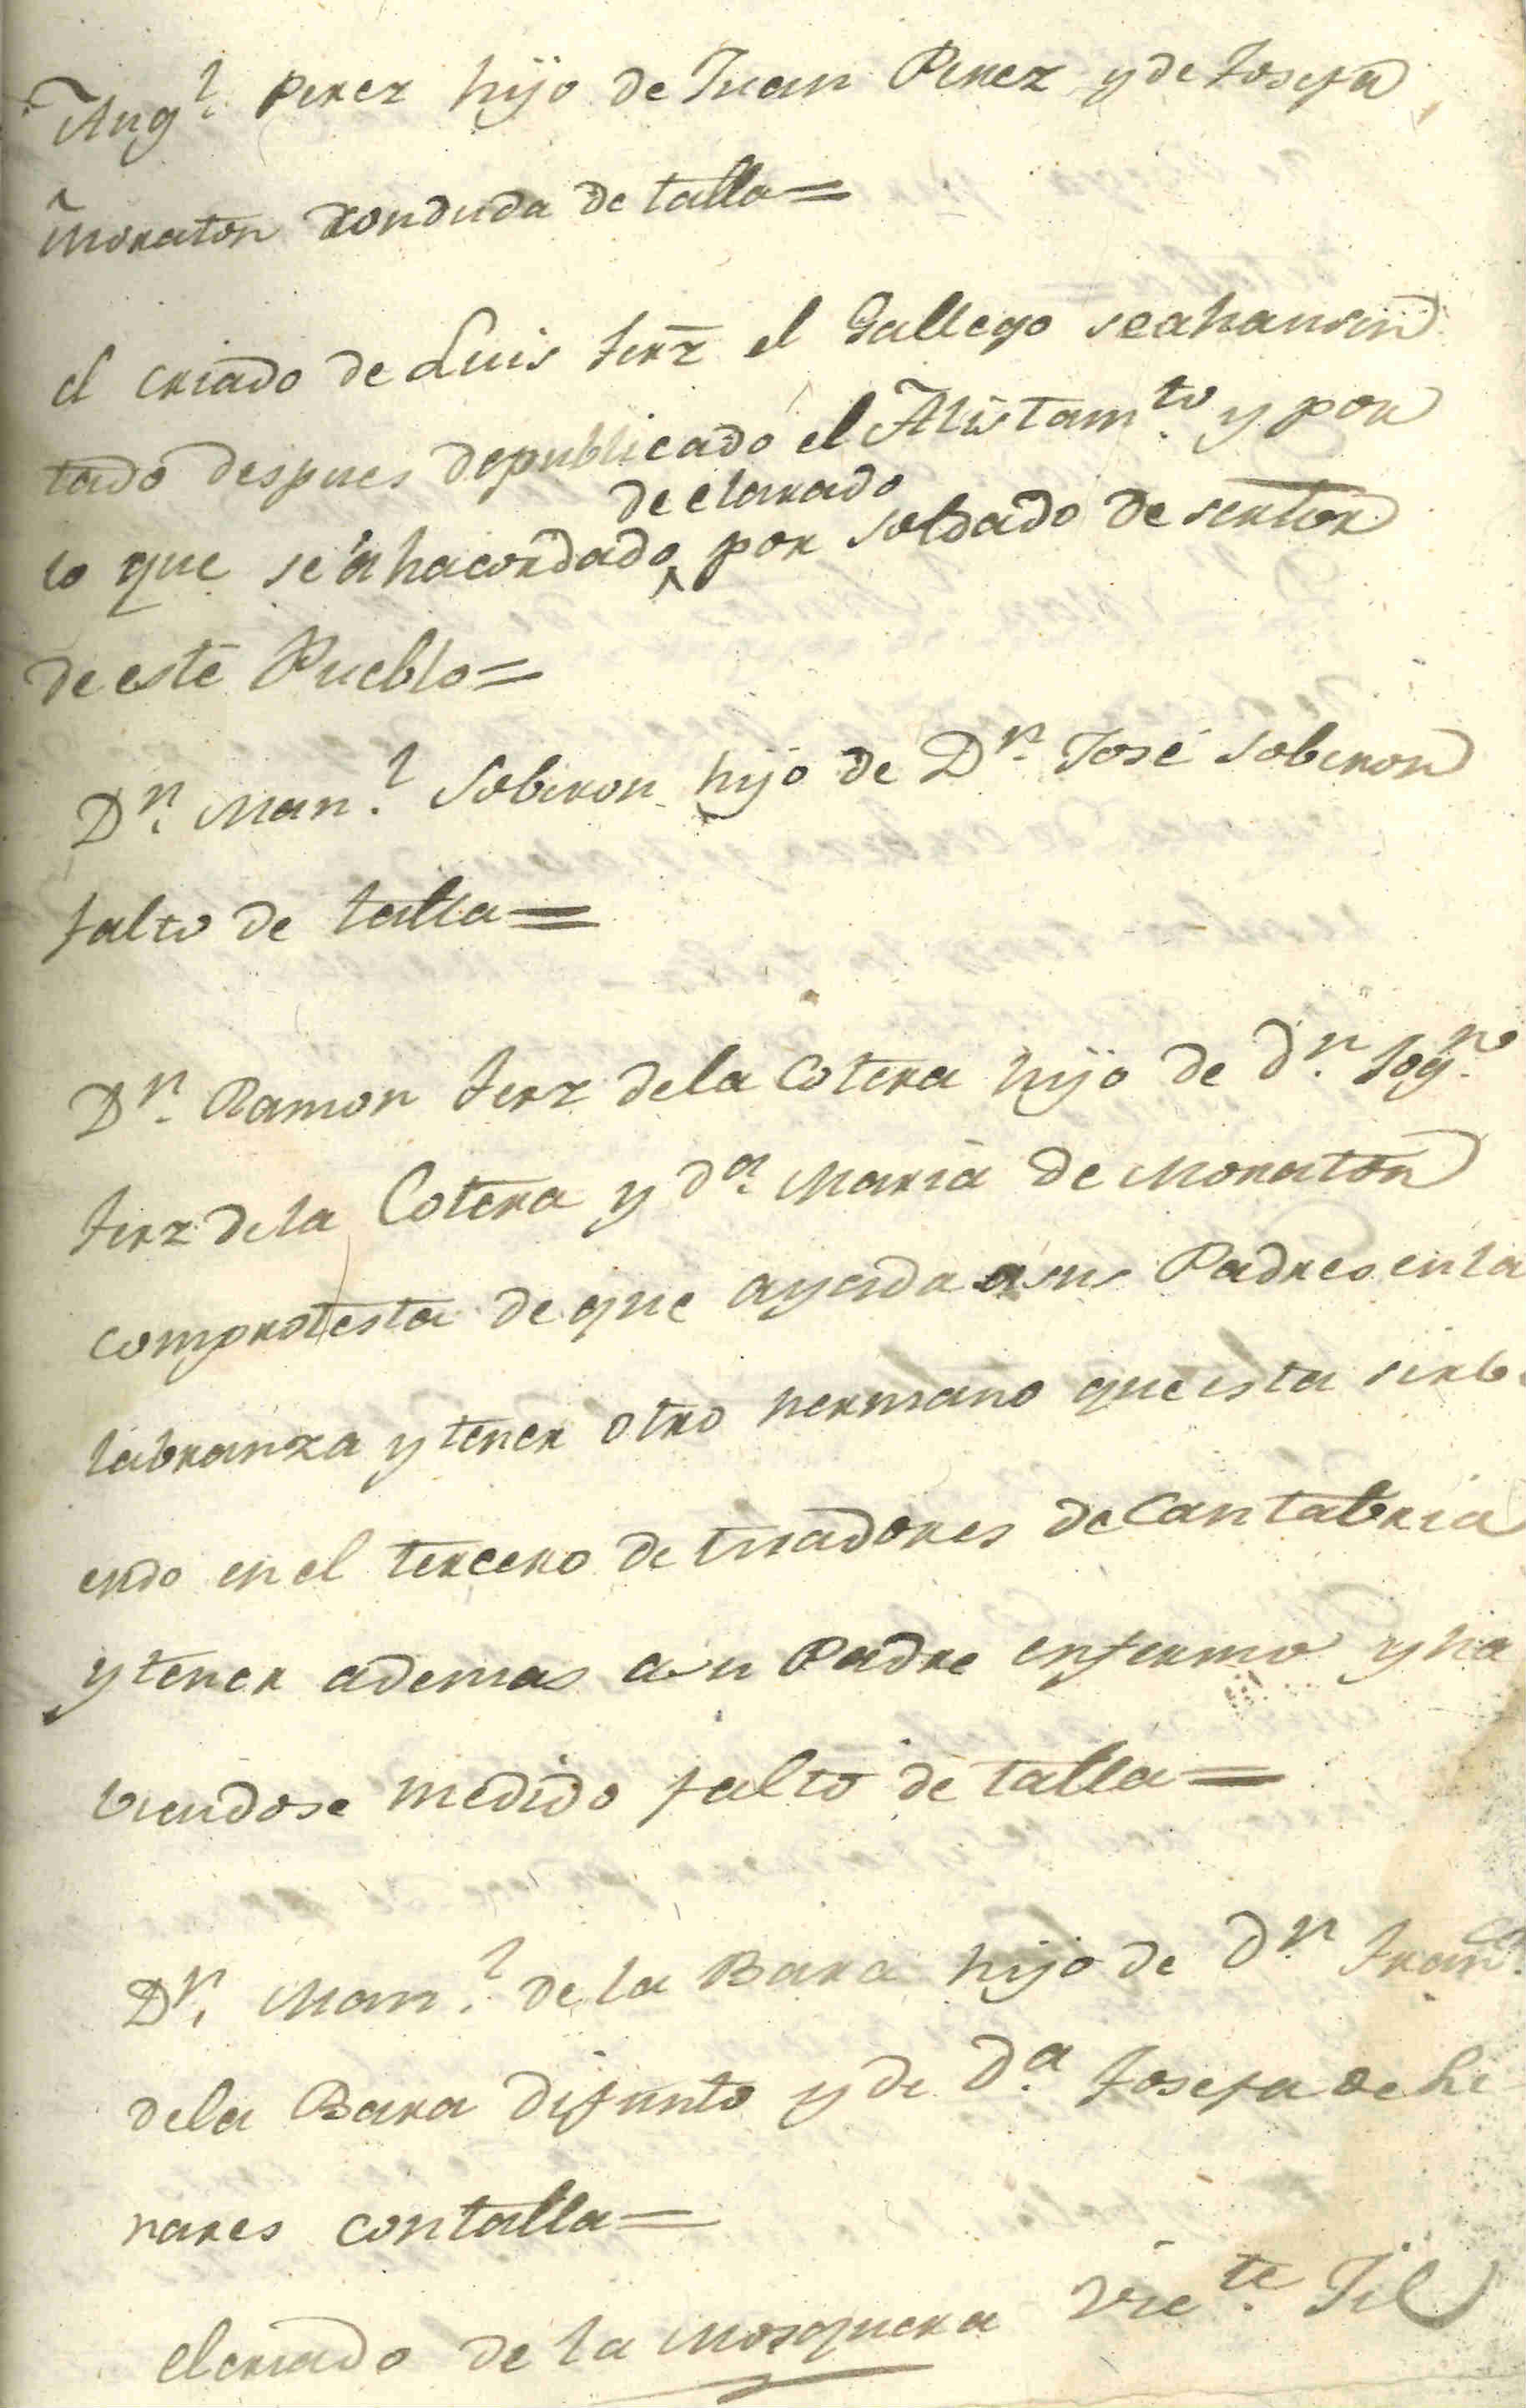 Ang.l Perez hijo de Juan Perez y de Josefa
Moraton con duda de talla=
el criado de Luis ferz el Gallego se a hausen
tado despues de publicado el Alistam.to y por
declarado
lo que se a hacordado por soldado de sertor
de este Pueblo=
D.n Man.l Soberon hijo de D.n José Soberon
falto de talla=
D.n Ramon ferz de la Cotera hijo de d.n
ferz de la Cotera y d.a Maria de Moraton
comprotesta de que ayuda a sus Padres en la
labranza y tener otro hermano que esta sirbi
endo en el tercero de tiradores de Cantabria
y tener ademas a su Padre enfermo y ha
biendose medido falto de talla=
D.n Man.l de la Bara hijo de d.n Fran.co
de la Bara difunto y de D.a Josefa de Li
nares con talla=
el criado de la Mosquera Vic.te Jil